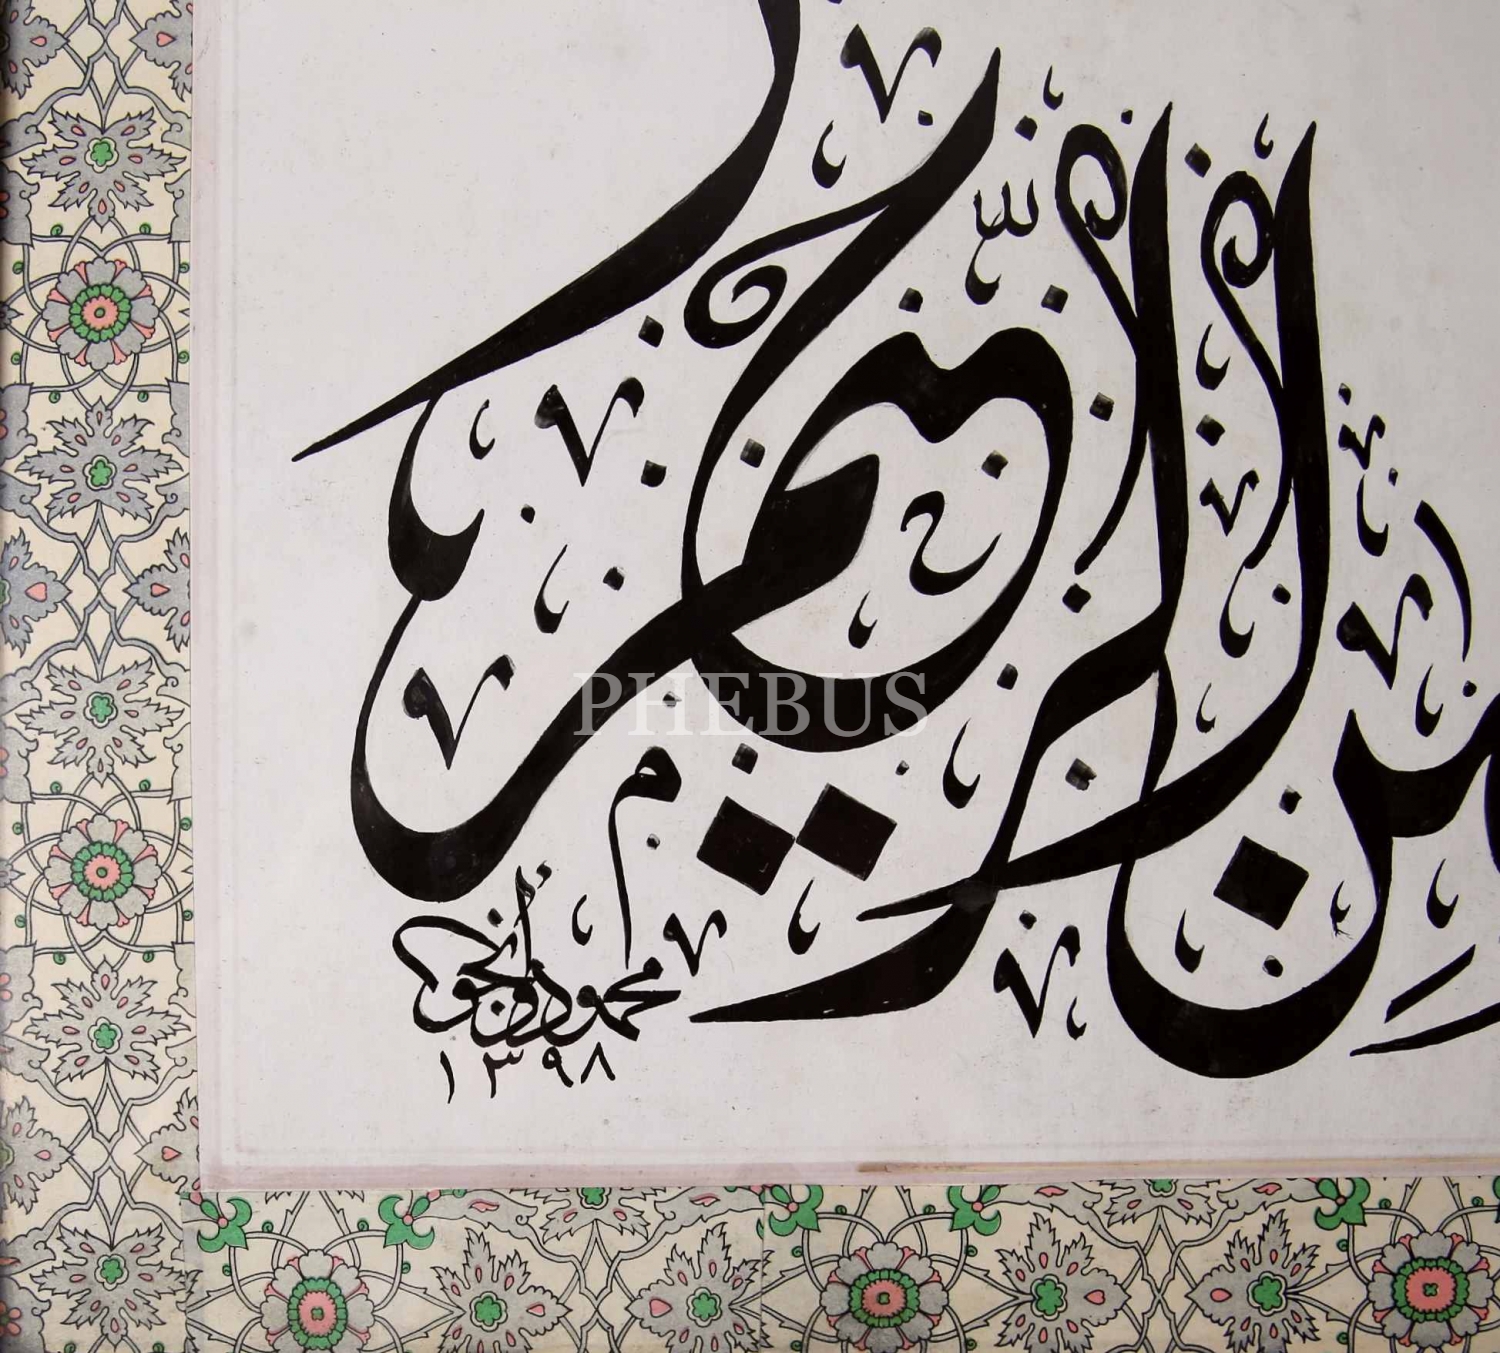 الرحمن الرحيم
محمود اونجو
١٣٩٨
PHEBUS